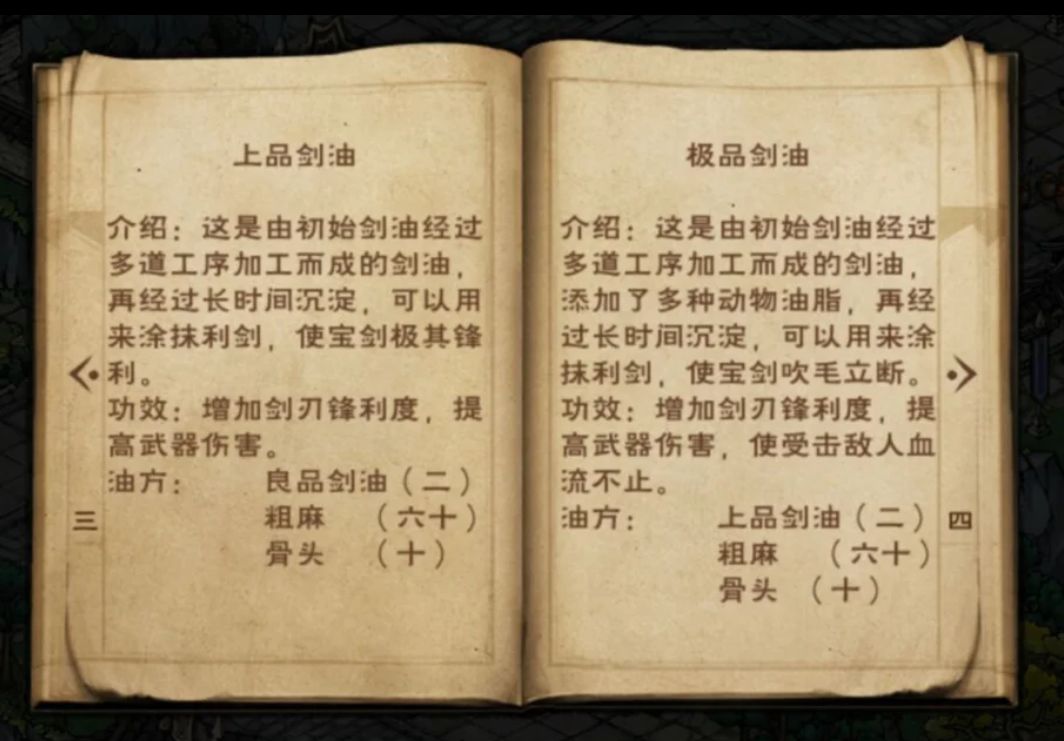 上品剑油
介绍：这是由初始剑油经过
多道工序加工而成的剑油，
再经过长时间沉淀，可以用
来涂抹利剑，使宝剑极其锋
利。
功效：增加剑刃锋利度，提
高武器伤害。
油方： 良品剑油（二）
粗麻 （六十）
骨头 （十）
三
极品剑油
介绍：这是由初始剑油经过
多道工序加工而成的剑油，
添加了多种动物油脂，再经
过长时间沉淀，可以用来涂
抹利剑，使宝剑吹毛立断。
功效：增加剑刃锋利度，提
高武器伤害，使受击敌人血
流不止。
油方： 上品剑油（二）
粗麻 （六十）
骨头 （十）
四